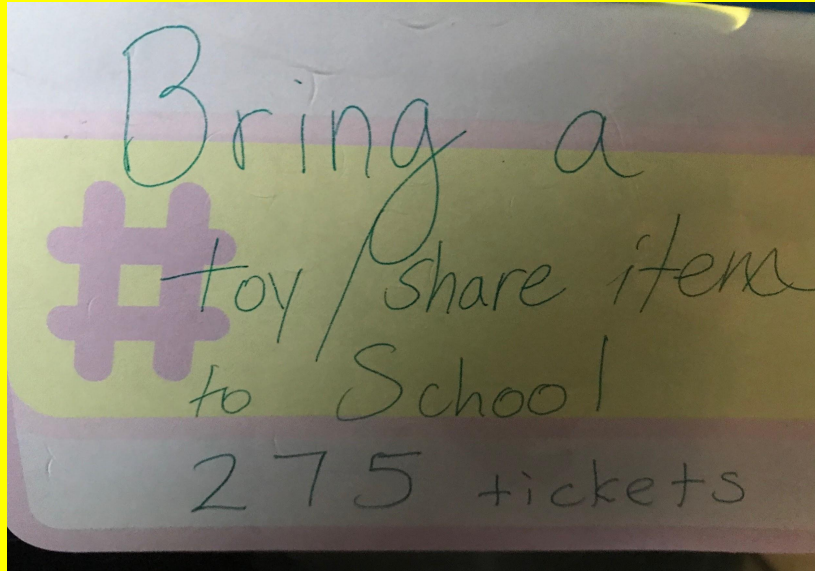 Bring a
toy/share item
to School
275 tickets